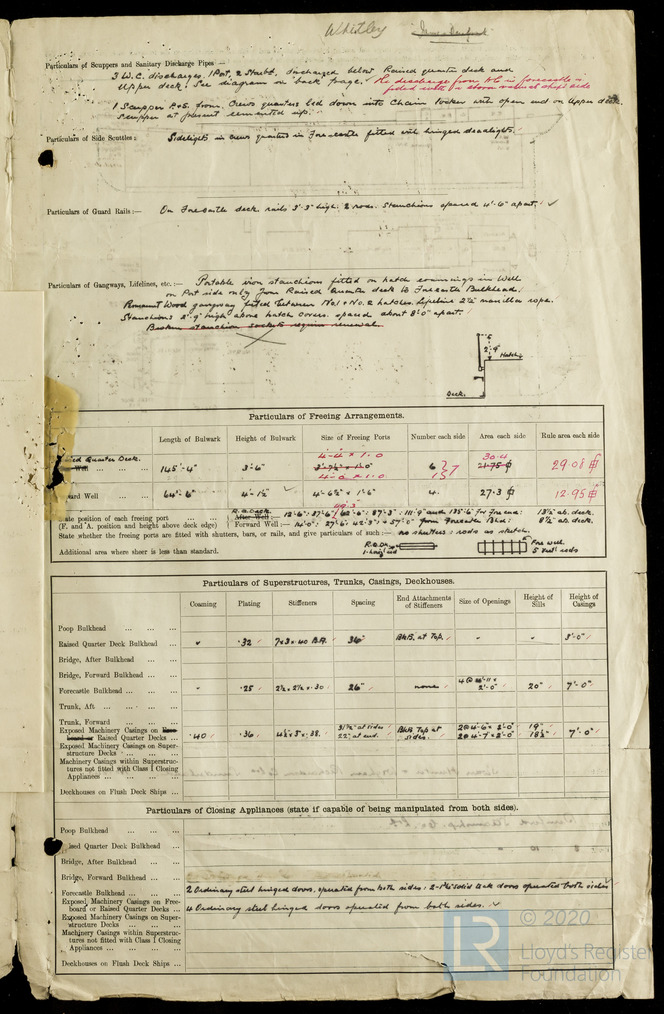 Whitley
Particulars of Scuppers and Sanitary Discharge Pipes —
3 W.C. discharges. 1 Port, 2 Starbd. discharged below Raised quarter deck and
Upper deck. See diagram on back page. The discharge from W.C. in forecastle is
fitted with a storm valve at ship's side
1 Scupper P & S. from Crews quarters led down into Chain locker with open end on Upper deck.
Scupper at present cemented up.
Particulars of Side Scuttles:— Sidelights in crews quarters in Forecastle fitted with hinged deadlights.
Particulars of Guard Rails:— On Forecastle deck. rails 3'-3" high. 2 rods. Stanchions spaced 4'-6" apart. ✓
Particulars of Gangways, Lifelines, etc.:— Portable iron stanchions fitted on hatch coamings in Well
on Port side only from Raised Quarter deck to Forecastle Bulkhead.
Permanent Wood gangway fitted between No.1 & No.2 hatches. Lifeline 2½" manilla rope.
Stanchions 2'-9" high above hatch covers. spaced about 8'-0" apart.
Broken stanchion sockets require renewal.
2'-9"
Hatch
Deck.
Particulars of Freeing Arrangements.
Length of Bulwark Height of Bulwark Size of Freeing Ports Number each side Area each side Rule area each side
Quarter Deck. 145'-4" 3'-6" 4-4 x 1.0 6 30.4 21.75 29.08
4-0 x 1.0
Well 64'-6" 4'-1½" 4'-6½" x 1'-6" 4. 27.3 12.95
State position of each freeing port
(F. and A. position and height above deck edge) Forward Well:— 14'0": 27'6": 42'3": & 57'0" from Forecastle Bhd: 8½" ab. deck.
State whether the freeing ports are fitted with shutters, bars, or rails, and give particulars of such:— no shutters: rods as sketch.
Additional area where sheer is less than standard.
Fore well
5 Vert' rods
Particulars of Superstructures, Trunks, Casings, Deckhouses.
Coaming Plating Stiffeners Spacing End Attachments of Stiffeners Size of Openings Height of Sills Height of Casings
Poop Bulkhead ... ... ...
Raised Quarter Deck Bulkhead ... .32 7x3x.40 B.A. 36" Bkts. at Top. 3'-0"
Bridge, After Bulkhead ... ...
Bridge, Forward Bulkhead ... ...
Forecastle Bulkhead ... ... ... .25 2½x2½x.30 26" none 20" 7'-0"
Trunk, Aft ... ... ...
Trunk, Forward ... ... ...
Exposed Machinery Casings on Freeboard or Raised Quarter Decks ... .40 .36 4½x3x.38. 31½" at sides 22" at end. Bkts Top at sides. 2@4'-6"x2'-0" 2@4'-7"x2'-0" 19" 18½" 7'-0"
Exposed Machinery Casings on Superstructure Decks ... ...
Machinery Casings within Superstructures not fitted with Class I Closing Appliances ... ... ...
Deckhouses on Flush Deck Ships ...
Particulars of Closing Appliances (state if capable of being manipulated from both sides).
Poop Bulkhead ... ... ...
Raised Quarter Deck Bulkhead ...
Bridge, After Bulkhead ... ...
Bridge, Forward Bulkhead ... ...
Forecastle Bulkhead ... ... ... 2 Ordinary steel hinged doors, operated from both sides: 2 solid teak doors operated both sides
Exposed Machinery Casings on Freeboard or Raised Quarter Decks ... 4 Ordinary steel hinged doors operated from both sides. ✓
Exposed Machinery Casings on Superstructure Decks ... ... ...
Machinery Casings within Superstructures not fitted with Class I Closing Appliances ... ... ...
Deckhouses on Flush Deck Ships ...
LR © 2020
Lloyd's Register
Foundation